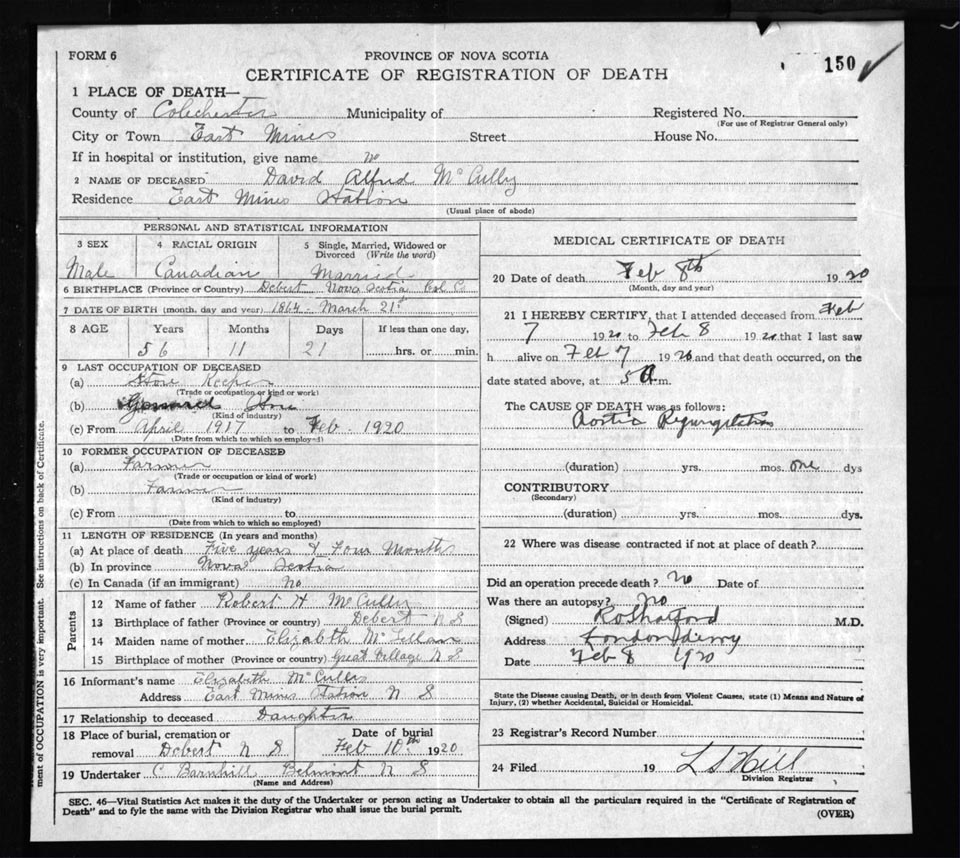 FORM 6
PROVINCE OF NOVA SCOTIA
150
CERTIFICATE OF REGISTRATION OF DEATH
1 PLACE OF DEATH—
County of Colechester Municipality of Registered No.
(For use of Registrar General only)
City or Town East Mines Street House No.
If in hospital or institution, give name no
2 NAME OF DECEASED David Alfred McCully
Residence East Mines Station
(Usual place of abode)
PERSONAL AND STATISTICAL INFORMATION
3 SEX 4 RACIAL ORIGIN 5 Single, Married, Widowed or Divorced (Write the word)
Male Canadian Married
6 BIRTHPLACE (Province or Country) Debert Nova Scotia Col C.
7 DATE OF BIRTH (month, day and year) 1864 March 21st
8 AGE Years Months Days If less than one day,
56 11 21 hrs. or min.
9 LAST OCCUPATION OF DECEASED
(a) Store Keeper
(Trade or occupation or kind or work)
(b) Store
(Kind of industry)
(c) From April 1917 to Feb 1920
(Date from which to which so employed)
10 FORMER OCCUPATION OF DECEASED
(a) Farmer
(Trade or occupation or kind of work)
(b) Farmer
(Kind of industry)
(c) From to
(Date from which to which so employed)
11 LENGTH OF RESIDENCE (In years and months)
(a) At place of death Five years & Four Months
(b) In province Nova Scotia
(c) In Canada (if an immigrant) No
Parents
12 Name of father Robert H McCully
13 Birthplace of father (Province or country) Debert N S
14 Maiden name of mother Elizabeth McLellan
15 Birthplace of mother (Province or country) Great Village N S
16 Informant's name Elizabeth McCully
Address East Mines Station N S
17 Relationship to deceased Daughter
18 Place of burial, cremation or removal Debert N S Date of burial Feb 10th 1920
19 Undertaker C Barnhill Belmont N S
(Name and Address)
MEDICAL CERTIFICATE OF DEATH
20 Date of death Feb 8th 1920
(Month, day and year)
21 I HEREBY CERTIFY, that I attended deceased from Feb
7 1920 to Feb 8 1920 that I last saw
h alive on Feb 7 1920 and that death occurred, on the
date stated above, at 5 A m.
The CAUSE OF DEATH was as follows:
Aortic Regurgitation
(duration) yrs. mos. one dys
CONTRIBUTORY
(Secondary)
(duration) yrs. mos. dys.
22 Where was disease contracted if not at place of death?
Did an operation precede death? no Date of
Was there an autopsy? no
(Signed) R O Shatford M.D.
Address Londonderry
Date Feb 8 1920
State the Disease causing Death, or in death from Violent Causes, state (1) Means and Nature of
Injury, (2) whether Accidental, Suicidal or Homicidal.
23 Registrar's Record Number
24 Filed 19 L S Hill
Division Registrar
ment of OCCUPATION is very important. See instructions on back of Certificate.
SEC. 46—Vital Statistics Act makes it the duty of the Undertaker or person acting as Undertaker to obtain all the particulars required in the "Certificate of Registration of
Death" and to fyle the same with the Division Registrar who shall issue the burial permit.
(OVER)